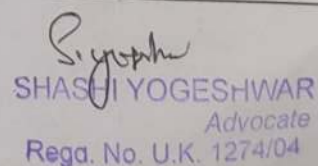 SHASHI YOGESHWAR
Advocate
Regd. No. U.K. 1274/04